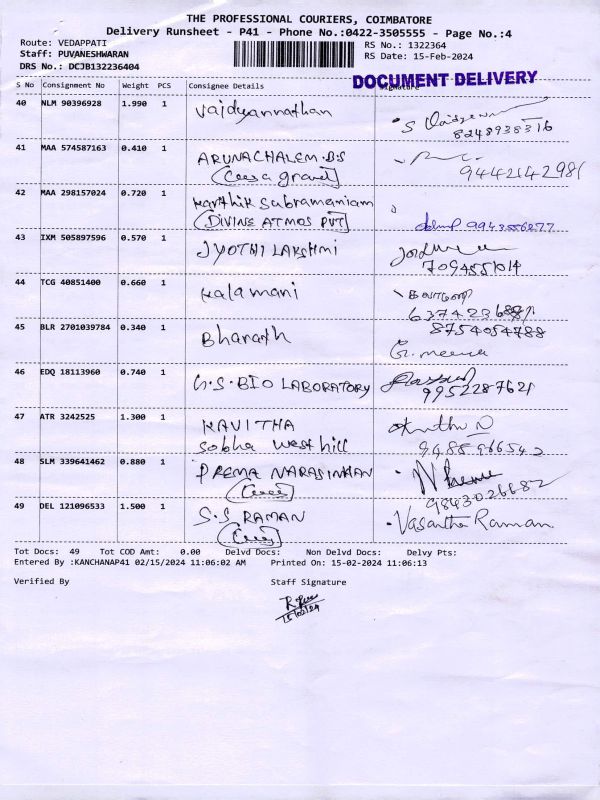 THE PROFESSIONAL COURIERS, COIMBATORE
Delivery Runsheet - P41 - Phone No.:0422-3505555 - Page No.:4
Route: VEDAPPATI RS No.: 1322364
Staff: PUVANESHWARAN RS Date: 15-Feb-2024
DRS No.: DCJB132236404
DOCUMENT DELIVERY
S No Consignment No Weight PCS Consignee Details Signature
40 NLM 90396928 1.990 1 Vaidyannathan
8248938316
41 MAA 574587163 0.410 1 ARUNACHALEM.BS
9442142981
42 MAA 298157024 0.720 1 Karthik Subramaniam
(DIVINE ATMOS PVT) 9943556277
43 IXM 505897596 0.570 1 JYOTHI LAKSHMI
7094551014
44 TCG 40851400 0.660 1 Kalamani
45 BLR 2701039784 0.340 1 Bharath 8754054788
G. meena
46 EDQ 18113960 0.740 1 G.S. BIO LABORATORY
9952287621
47 ATR 3242525 1.300 1 KAVITHA
Sobha West hill
48 SLM 339641462 0.880 1 PREMA NARASIMHAN
9843026682
49 DEL 121096533 1.500 1 S.S RAMAN Vasantha Raman
Tot Docs: 49 Tot COD Amt: 0.00 Delvd Docs: Non Delvd Docs: Delvy Pts:
Entered By :KANCHANAP41 02/15/2024 11:06:02 AM Printed On: 15-02-2024 11:06:13
Verified By Staff Signature
15/02/24